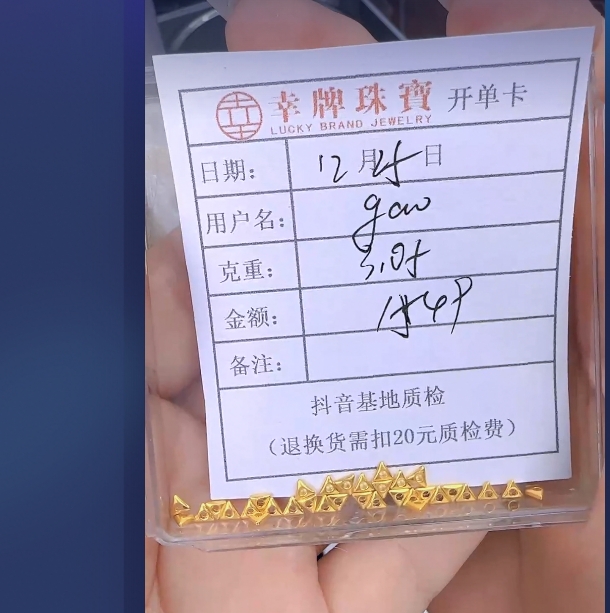 幸牌珠寶 开单卡
LUCKY BRAND JEWELRY
日期： 12月25日
用户名： gao
克重： 3.05
金额： 1549
备注：
抖音基地质检
（退换货需扣20元质检费）